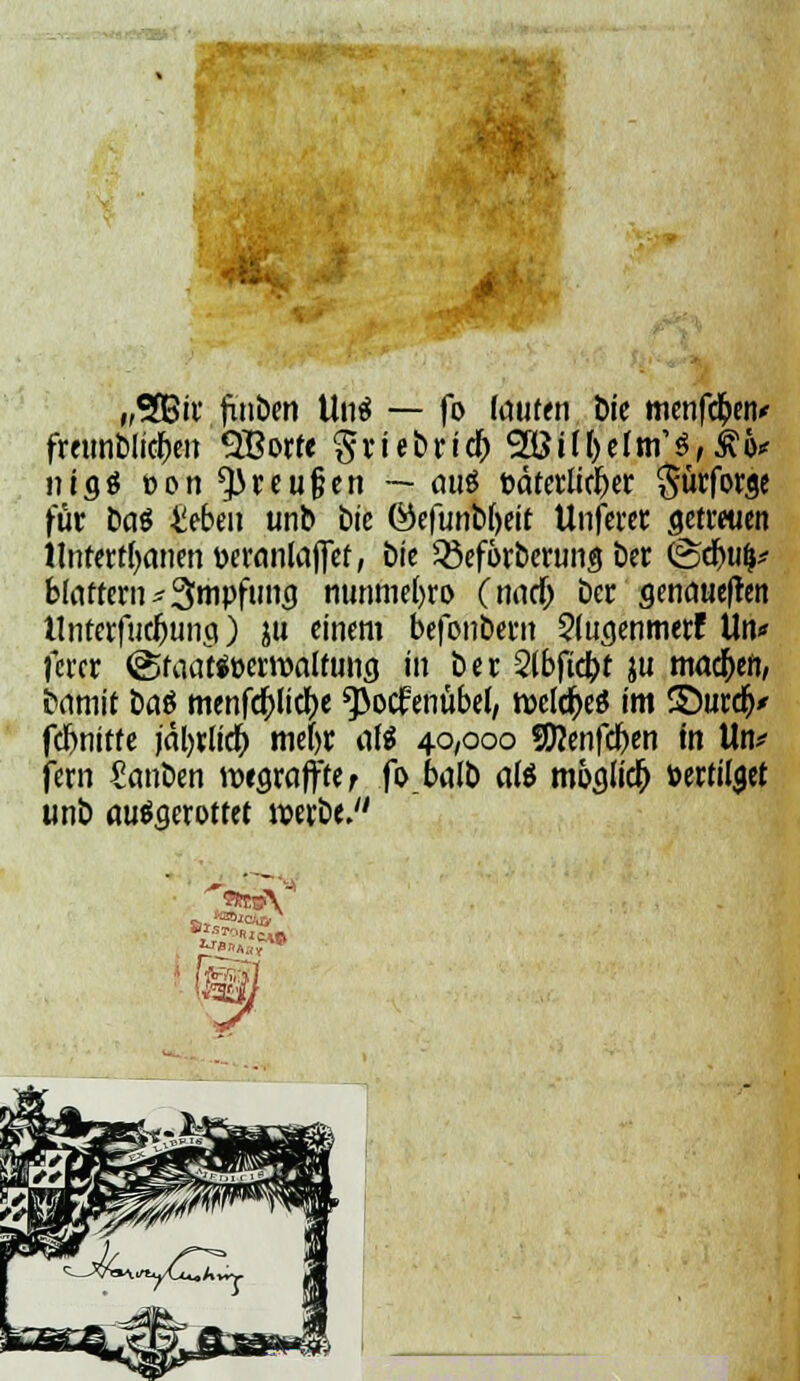 „Wir finden Uns — so lauten die menschen-
freundlichen Worte Friedrich Wilhelm's, Kö-
nigs von Preußen — aus väterlicher Fürforge
für das Leben und die Gesundheit Unserer getreuen
Unterthanen veranlasset, die Beförderung der Schutz-
blattern-Impfung nunmehro (nach der genauesten
Untersuchung) zu einem besondern Augenmerk Un-
serer Staatsverwaltung in der Absicht zu machen,
damit das menschliche Pockenübel, welches im Durch-
schnitte jährlich mehr als 40,000 Menschen in Un-
sern Landen wegraffte, so bald als möglich vertilget
und ausgerottet werde."
MEDICAL
HISTORICAL
LIBRARY
EX LIBRIS
MEDICIS
Harvey Cushing